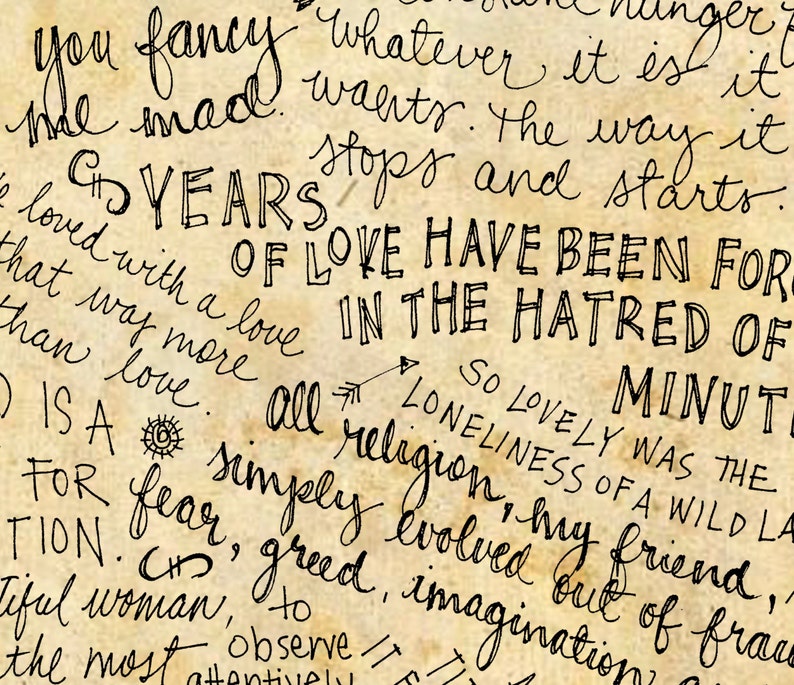 you fancy
me mad.
hunger
Whatever it is it
wants. The way it
stops and starts.
YEARS
OF LOVE HAVE BEEN FORG
IN THE HATRED OF
MINUT
loved with a love
that was more
than love.
IS A
FOR
TION.
SO LOVELY WAS THE
LONELINESS OF A WILD LA
all religion, my friend,
simply evolved out of frau
fear, greed, imagination,
tiful woman, to
observe
the most attentively